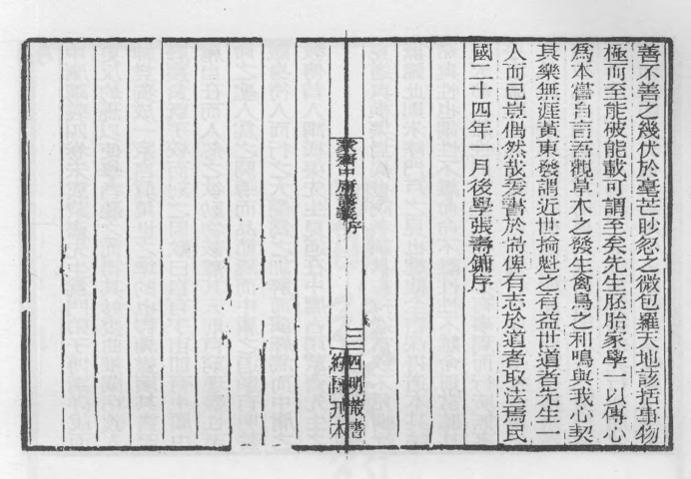 善不善之幾伏於毫芒眇忽之微包羅天地該括事物
極而至能破能載可謂至矣先生胚胎家學一以傳心
為本嘗自言吾觀草木之發生禽鳥之和鳴與我心契
其樂無涯黃東發謂近世掄魁之有益世道者先生一
人而已豈偶然哉爰書於耑俾有志於道者取法焉民
國二十四年一月後學張壽鏞序
蒙齋中庸講義序
三
四明叢書
約園刊本